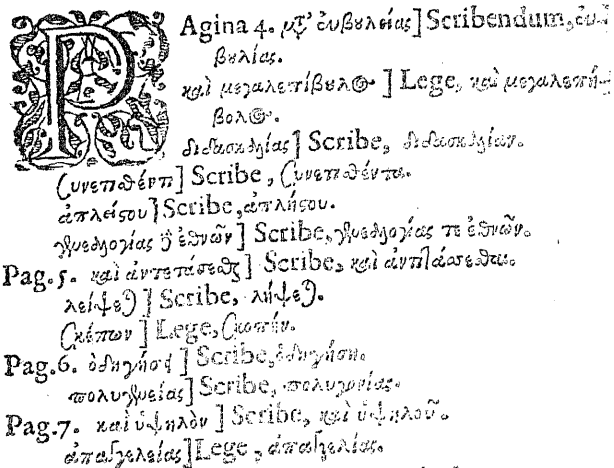 PAgina 4. μετ' ἐυβυλείας] Scribendum, ἐυ-
βυλίας.
καὶ μεγαλεπίβυλος ] Lege, καὶ μεγαλεπή-
βολος.
διδασκαλίας] Scribe, διδασκαλίαν.
συνεπαθέντι] Scribe, συνεπαθέντα.
ἀπλείςου] Scribe, ἀπλήςου.
γενεαλογίας ἢ ἐθνῶν] Scribe, γενεαλογίας τε ἐθνῶν.
Pag.5. καὶ ἀντετάσεθς] Scribe, καὶ ἀντιτάσεθαι.
λείψεται] Scribe, λήψεται.
σκέπων] Lege, σκοπήν.
Pag.6. ὁδηγήσει] Scribe, ὁδηγήση.
πολυγενείας] Scribe, πολυγονίας.
Pag.7. καὶ ὑψηλὸν ] Scribe, καὶ ὑψηλοῦ.
ἀπαγγελείας] Lege, ἀπαγγελίας.